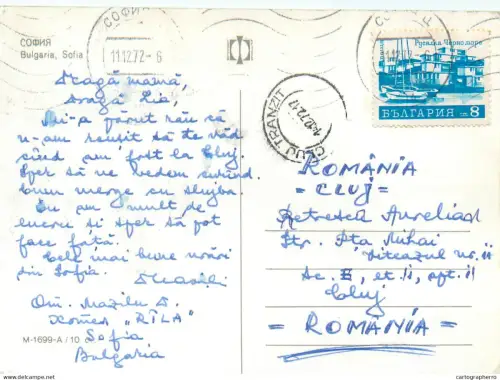 СОФИЯ
Bulgaria, Sofia
СОФИЯ
11.12.72-6
Dragă mamă
Dragă Lia,
Mi-a părut rău că
n-am reușit să te văd
când am fost la Cluj.
Sper să ne vedem curând
bun merge cu slujba
Eu am mult de
lucru și sper să pot
face față.
Cele mai bune urări
din Sofia.
Om. Mazilu D.
Хотел "RILA"
Sofia
Bulgaria
M-1699-A / 10
CLUJ TRANZIT
Русалка Черно море
БЪЛГАРИЯ ст 8
ROMÂNIA
= CLUJ =
Aurelian
Str. Pta Mihai
Viteazul nr. 11
sc. E, et. II, apt. 11
Cluj
= ROMÂNIA =
www.cartographerro.com